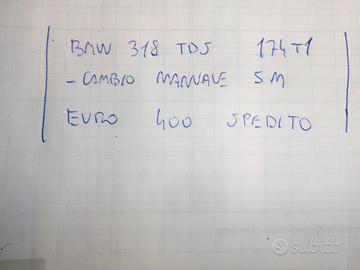 BMW 318 TDS 174T1
- CAMBIO MANUALE 5 M
EURO 400 SPEDITO
subito